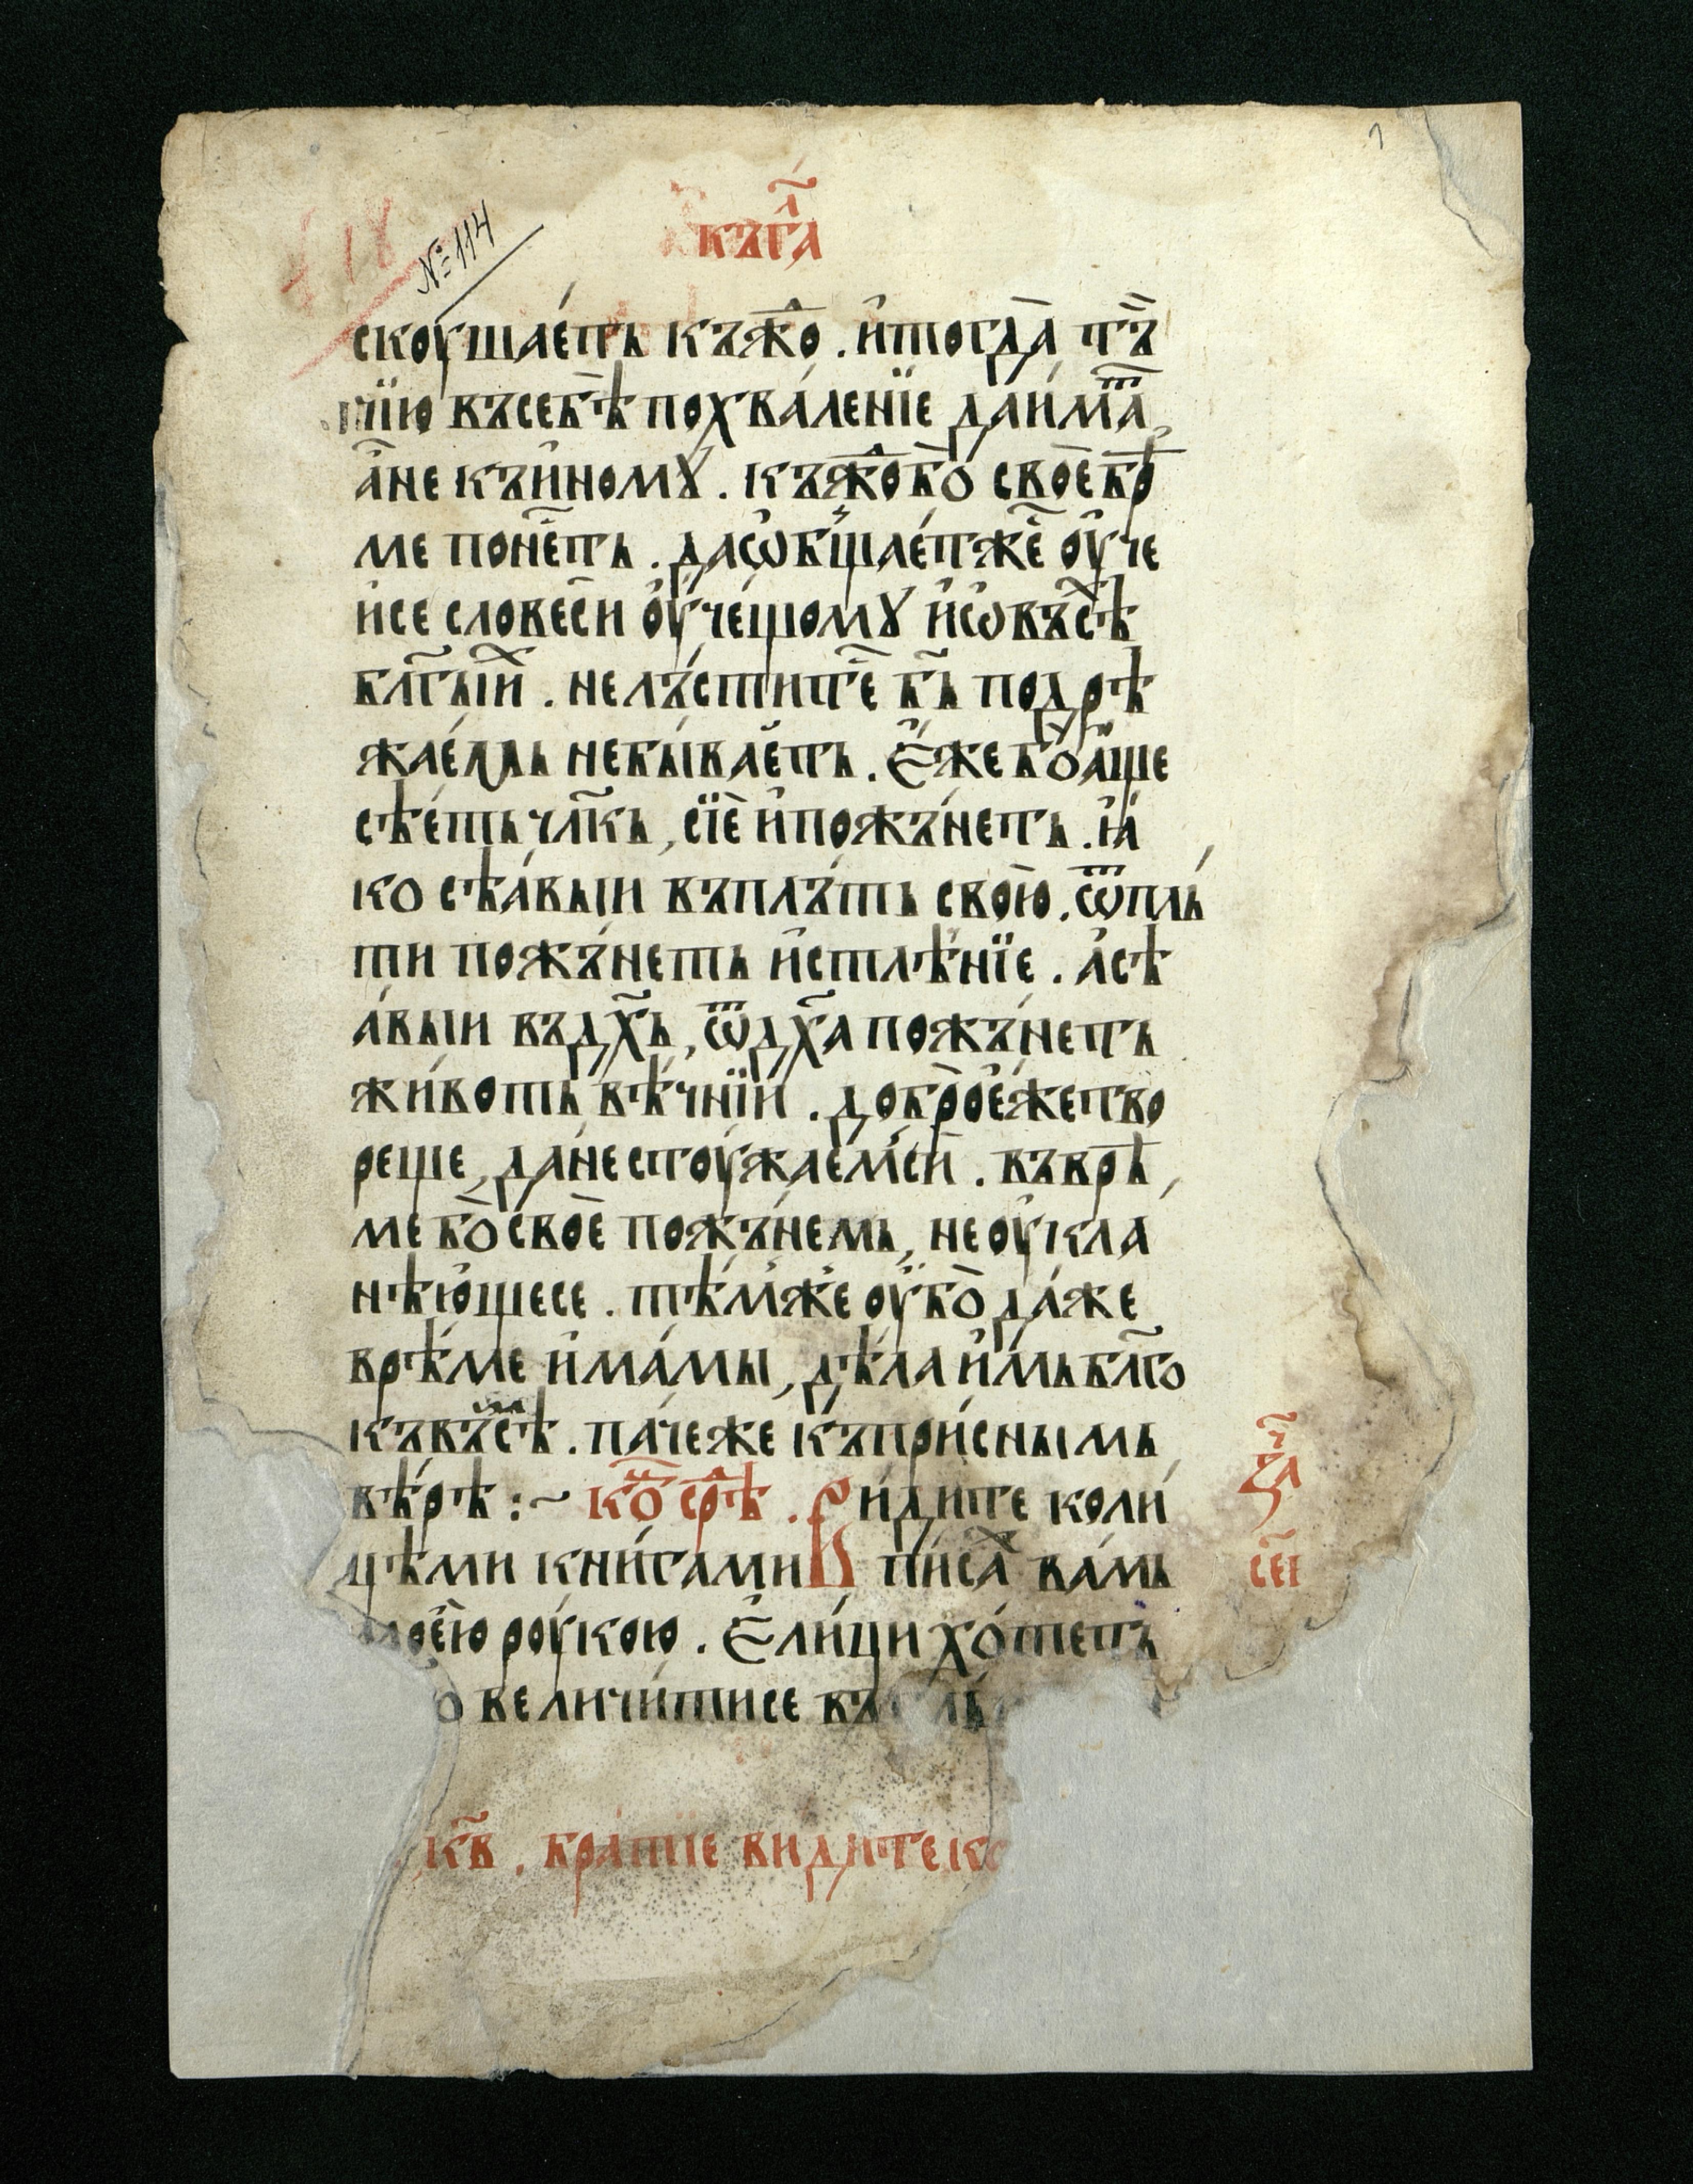 1
№ 114
къгал҃
скоуша́еть къжⷣо . и҆тогда̀ тъ̏
чїю въсебѣ̀ похвале́нїе даи́маⷮ
а҆не къи҆номꙋ̀ . къжⷣобо̀ своѐ брѣ
ме поне҇ть . даѡ҆бща́етже оу҆че
и҆се словеси оу҆чещомꙋ и҆ѡвъсѣⷯ
блг҃ыиⷯ . нельстите бь҃ подрѣ
жае́мь небыва́еть . Є҆жебо̀а҆ще
сѣ́еть чл҃кь , сїѐ и҆пожъ́неть . ꙗ҆́
ко сѣ́авыи въплъ́ть свою̀ . ѿплъ́
ти пожъ́неть и҆стлѣ́нїе . а҆сѣ
а́выи въдх҃ь , ѿдх҃а пожъ́неть
живо́ть вѣ́чнїи . доброе҆́жетво
реще , да́нестоужае́мси . въврѣ́
ме бо̀своѐ пожъ́немь , не оу҆кла
нѣю҆щесе . тѣ́мже оу҆бо̀ да́же
врѣ́ме и҆ма́мы , дѣ́ла и҆мь бл҃го
къвъсѣⷯ . па́чеже къпри́снымь
вѣ́рѣ :~ коⷩ҇ среⷣ . Ви́дите коли́
цѣми кни́гамиⷡ писаⷯ ва́мь
мое́ю роуко́ю . Є҆ли́ци хо́теть
о величи́тисе въ пль
за҃ч
сеі
кв҃ . бра́тїе видите ко